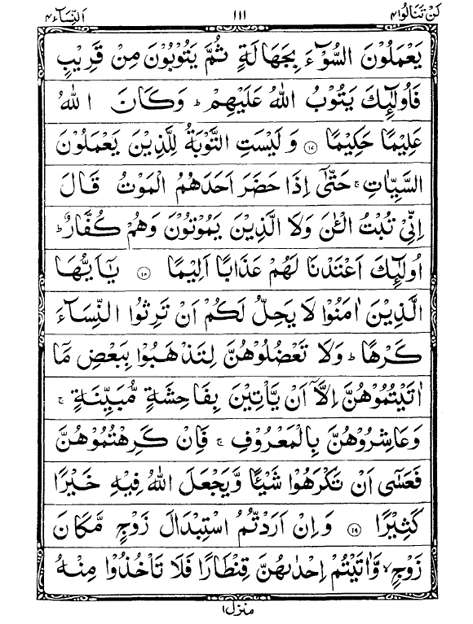 لَنْ تَنَالُوا ٤ ١١١ اَلنِّسَآء ٤
يَعْمَلُوْنَ السُّوْٓءَ بِجَهَالَةٍ ثُمَّ يَتُوْبُوْنَ مِنْ قَرِيْبٍ
فَاُولٰٓئِكَ يَتُوْبُ اللّٰهُ عَلَيْهِمْ ؕ وَكَانَ اللّٰهُ
عَلِيْمًا حَكِيْمًا ﴿١٧﴾ وَلَيْسَتِ التَّوْبَةُ لِلَّذِيْنَ يَعْمَلُوْنَ
السَّيِّاٰتِ ۚ حَتّٰۤى اِذَا حَضَرَ اَحَدَهُمُ الْمَوْتُ قَالَ
اِنِّيْ تُبْتُ الْـٰٔنَ وَلَا الَّذِيْنَ يَمُوْتُوْنَ وَهُمْ كُفَّارٌ ؕ
اُولٰٓئِكَ اَعْتَدْنَا لَهُمْ عَذَابًا اَلِيْمًا ﴿١٨﴾ يٰۤاَيُّهَا
الَّذِيْنَ اٰمَنُوْا لَا يَحِلُّ لَكُمْ اَنْ تَرِثُوا النِّسَآءَ
كَرْهًا ؕ وَلَا تَعْضُلُوْهُنَّ لِتَذْهَبُوْا بِبَعْضِ مَاۤ
اٰتَيْتُمُوْهُنَّ اِلَّاۤ اَنْ يَّاْتِيْنَ بِفَاحِشَةٍ مُّبَيِّنَةٍ ۚ
وَعَاشِرُوْهُنَّ بِالْمَعْرُوْفِ ۚ فَاِنْ كَرِهْتُمُوْهُنَّ
فَعَسٰۤى اَنْ تَكْرَهُوْا شَيْئًا وَّيَجْعَلَ اللّٰهُ فِيْهِ خَيْرًا
كَثِيْرًا ﴿١٩﴾ وَاِنْ اَرَدْتُّمُ اسْتِبْدَالَ زَوْجٍ مَّكَانَ
زَوْجٍ ۙ وَّاٰتَيْتُمْ اِحْدٰىهُنَّ قِنْطَارًا فَلَا تَاْخُذُوْا مِنْهُ
منزل ١